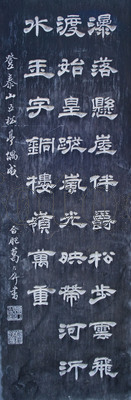 瀑落懸崖伴爵松步雲飛
渡始皇蹤嵐光映帶河沂
水玉字銅樓嶺萬重
登泰山五松亭偶成
合肥葛介屏書